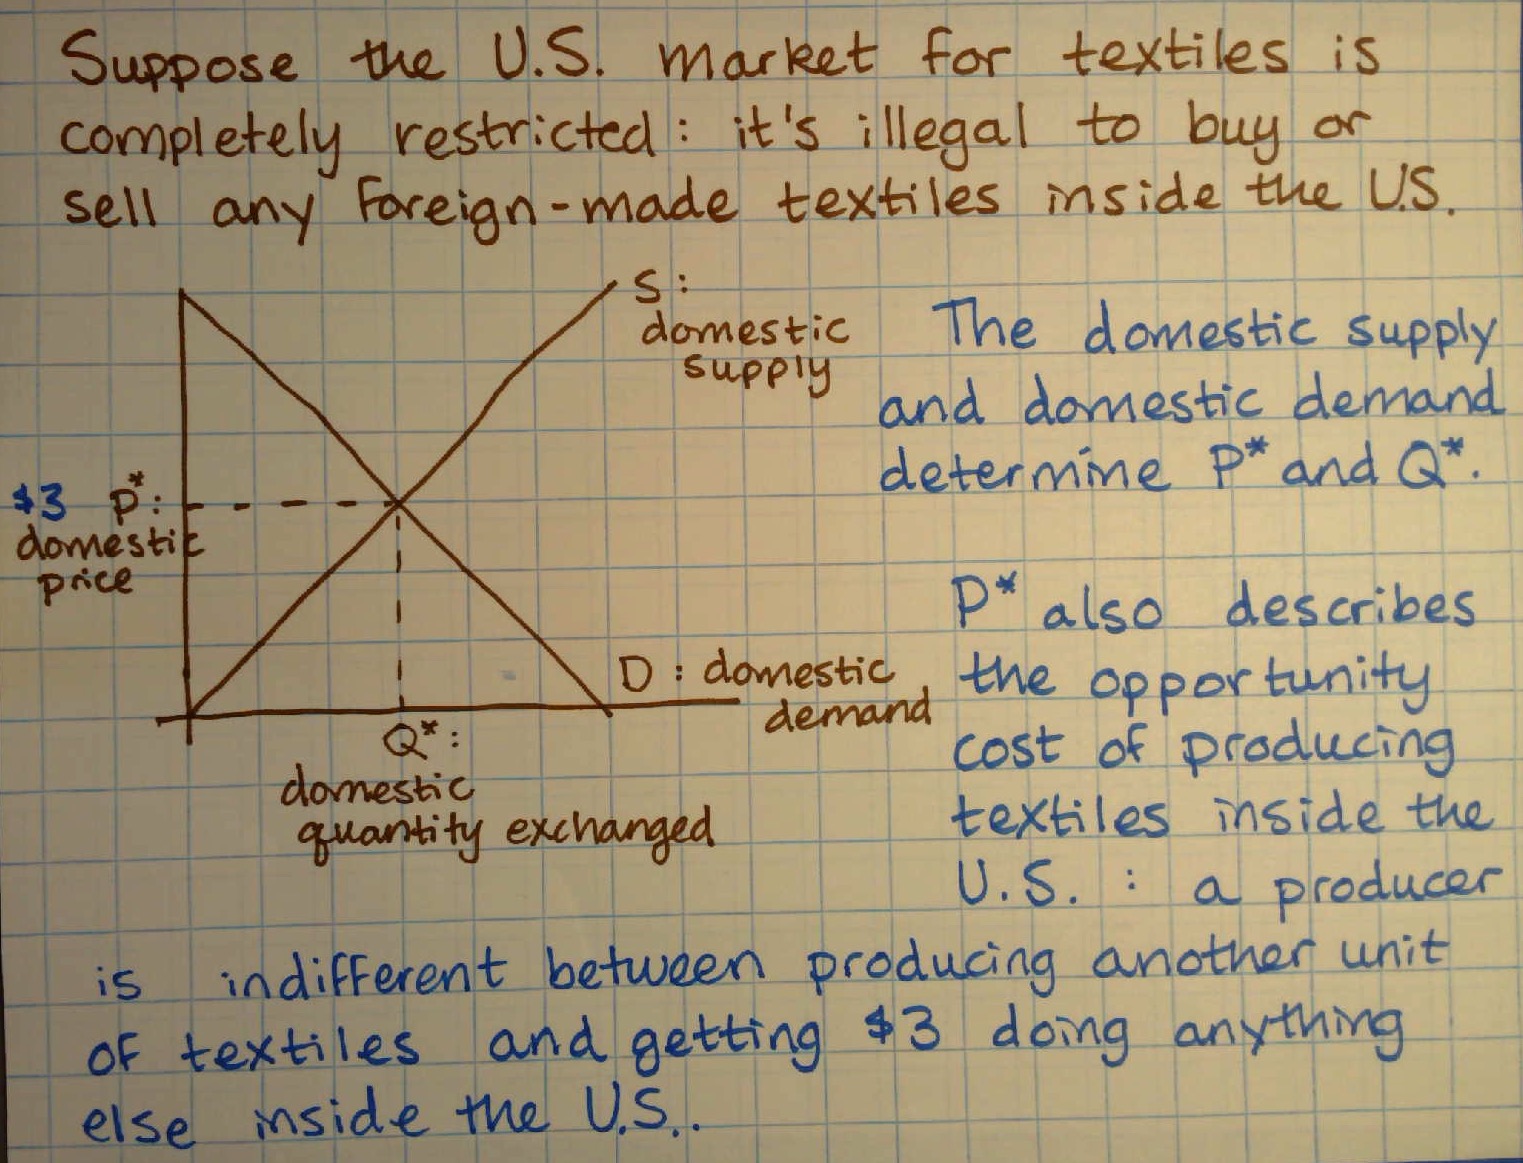 Suppose the U.S. market for textiles is
completely restricted: it's illegal to buy or
sell any foreign-made textiles inside the U.S.
S:
domestic
supply
$3 P*:
domestic
price
D: domestic
demand
Q*:
domestic
quantity exchanged
The domestic supply
and domestic demand
determine P* and Q*.
P* also describes
the opportunity
cost of producing
textiles inside the
U.S.: a producer
is indifferent between producing another unit
of textiles and getting $3 doing anything
else inside the U.S..